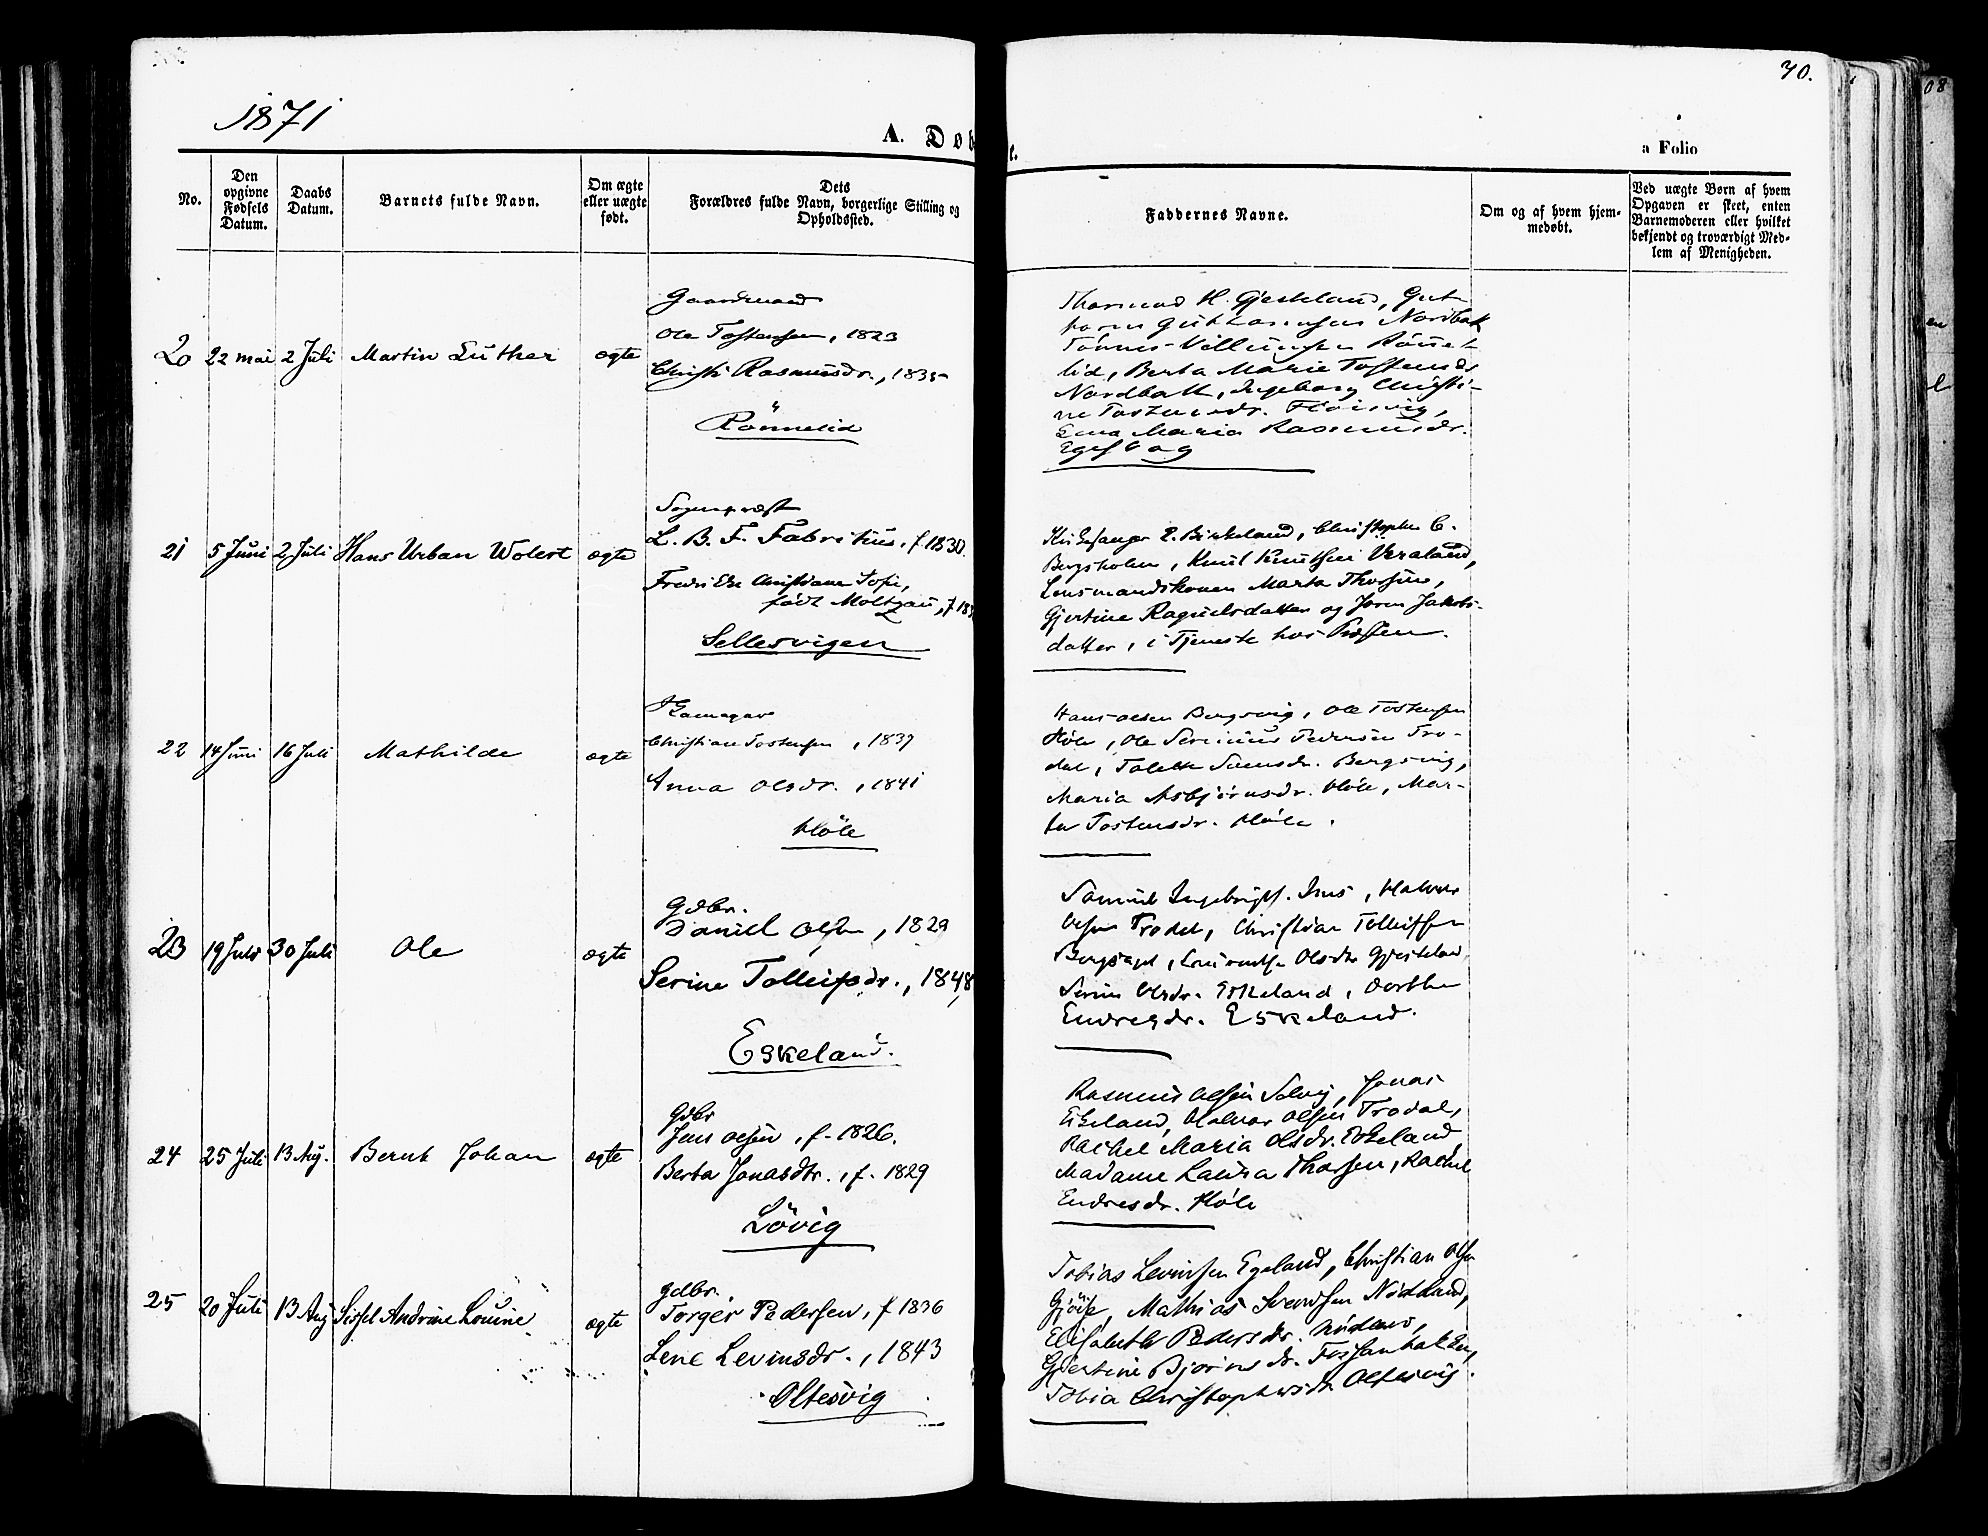 1871
70.
A. Døb
e.
a Folio
No.
Den opgivne Fødsels Datum.
Daabs Datum.
Barnets fulde Navn.
Om ægte eller uægte født.
Dets Forældres fulde Navn, borgerlige Stilling og Opholdssted.
Faddernes Navne.
Om og af hvem hjemmedøbt.
Ved uægte Børn af hvem Opgaven er skeet, enten Barnemoderen eller hvilket bekjendt og troværdigt Medlem af Menigheden.
20 22 mai 2 Juli Martin Luther ægte
Gaardmand
Ole Tostensen, 1823
Christi Rasmusdr., 1835
Rönnelid
Thormod H. Gjeskeland, Gut-
Nordbak
Tönnes Rönne-
lid, Berta Marie Tostensdr
Nordbakk, Ingeborg Christi-
ne Tostensdr.
Maria Rasmusdr.
21 5 Juni 2 Juli Hans Urban Wolert ægte
Sognepræst
L. B. F. Fabritius, f. 1830.
Fredrikke Christiane Sofie,
født Moltzau, f. 183
Sellesvigen
Kirkesanger P. Birkeland, Christopher C.
Bergsholm, Knut Knutsen Veraland,
Lensmandskonen Marta Thorsen,
Gjertine Raguelsdatter og Joren Jakobs-
datter, i Tjeneste hos Præsten.
22 14 Juni 16 Juli Mathilde ægte
Christian Tostensen, 1837
Anna Olsdr., 1841
Höle
Hans Olsen Bergsvig, Ole Tostensen
Höle, Ole Severinus Pedersen Tro-
dal, Bergsvig,
Maria Asbjörnsdr. Höle, Mar-
ta Tostensdr. Höle.
23 19 Juli 30 Juli Ole ægte
Gdbr.
Daniel Olsen, 1829
Serine Tolleifsdr., 1848
Eskeland.
Samuel Ingebrigts. Halvor
Olsen Trodal, Christian Tolleifsen
Olsdr Gjeskeland,
Serine Olsdr. Eskeland, Dorthe
Endresdr. Eskeland.
24 25 Juli 13 Aug. Bernt Johan ægte
Gdbr
Jens Olsen, f. 1826.
Berta Jonasdtr., f. 1829
Lövig
Rasmus Olsen Jonas
Eskeland, Halvor Olsen Trodal,
Rachel Maria Olsdr. Eskeland,
Madame Laura Thorsen, Rachel
Endresdr. Höle
25 20 Juli 13 Aug Sissel Andrine Lovine ægte
Gdbr.
Torger Pedersen, f 1836
Lene Levinsdr., 1843
Oltesvig
Tobias Levinsen Egeland, Christian Olsen
Mathias Svendsen Nödland,
Elisabeth Pedersdr. Nödland,
Gjertine Björnsdr.
Tobia Christophersdr Oltesvig.